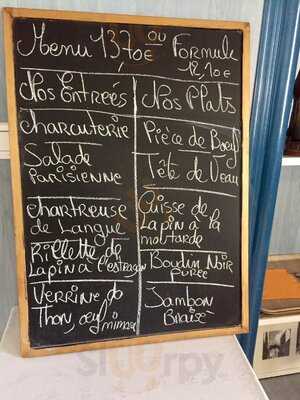 Menu 13,70€ ou Formule
12,10€
Nos Entrées
Charcuterie
Salade
Parisienne
Chartreuse
de Langue
Rillette de
Lapin à l'estragon
Verrine de
Thon, œuf mimosa
Nos Plats
Pièce de Boeuf
Tête de Veau
Cuisse de
Lapin à la
moutarde
Boudin Noir
purée
Jambon
Braisé
sluurpy